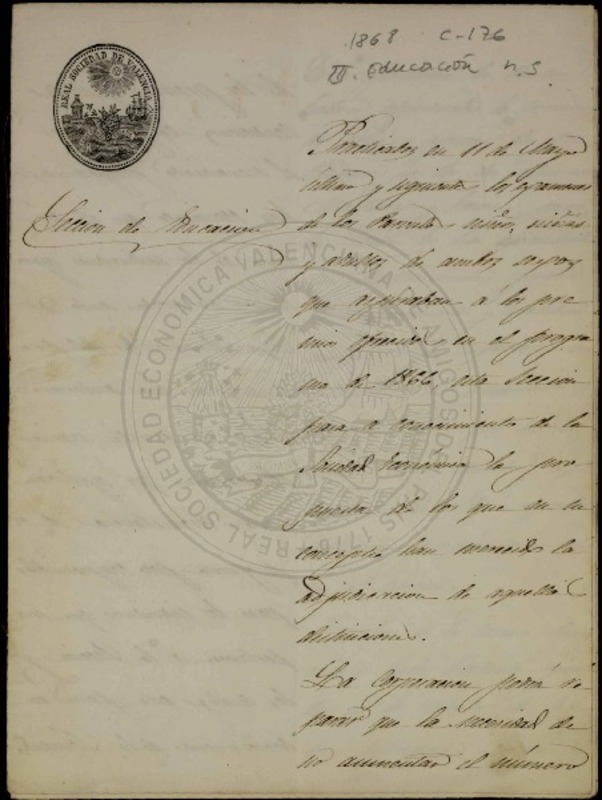 1868 C-176
III. Educación n. 5
REAL SOCIEDAD DE VALENCIA
Seccion de Educacion
en 11 de Mayo
último y siguientes los examenes
de los Parvulos, niños, niñas
y adultos de ambos sexos
que aspiraban á los pre
mios ofrecidos en el progra
ma de 1866, esta Seccion
pasa a conocimiento de la
Sociedad Económica la pro
puesta de los que en su
concepto han merecido la
adjudicacion de aquellas
distinciones.
La Corporacion podrá re
parar que la necesidad de
no aumentar el número
REAL SOCIEDAD ECONOMICA VALENCIANA DE AMIGOS DEL PAIS 1776